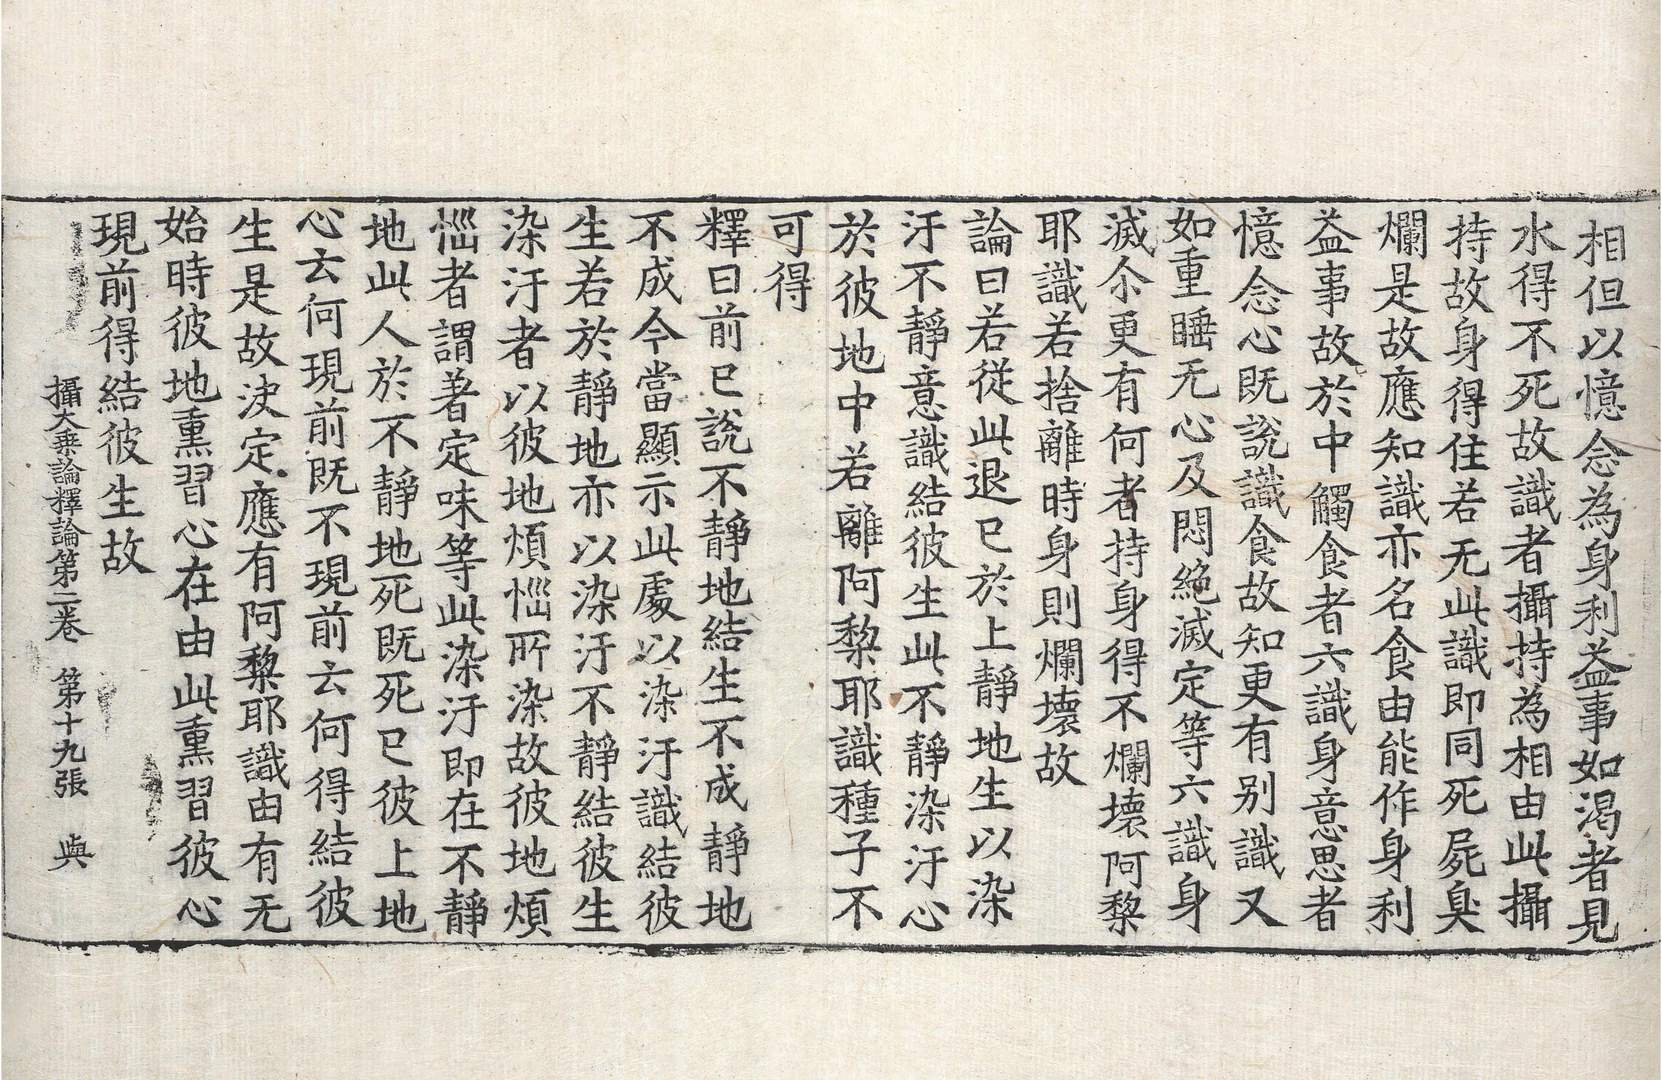 相但以憶念為身利益事如渴者見
水得不死故識者攝持為相由此攝
持故身得住若无此識即同死屍臭
爛是故應知識亦名食由能作身利
益事故於中觸食者六識身意思者
憶念心既說識食故知更有別識又
如重睡无心及悶絕滅定等六識身
滅尒更有何者持身得不爛壞阿黎
耶識若捨離時身則爛壞故
論曰若從此退已於上靜地生以染
汙不靜意識結彼生此不靜染汙心
於彼地中若離阿黎耶識種子不
可得
釋曰前已說不靜地結生不成靜地
不成今當顯示此處以染汙識結彼
生若於靜地亦以染汙不靜結彼生
染汙者以彼地煩惱所染故彼地煩
惱者謂著定味等此染汙即在不靜
地此人於不靜地死既死已彼上地
心云何現前既不現前云何得結彼
生是故決定應有阿黎耶識由有无
始時彼地熏習心在由此熏習彼心
現前得結彼生故
攝大乘論釋論第二卷 第十九張 與